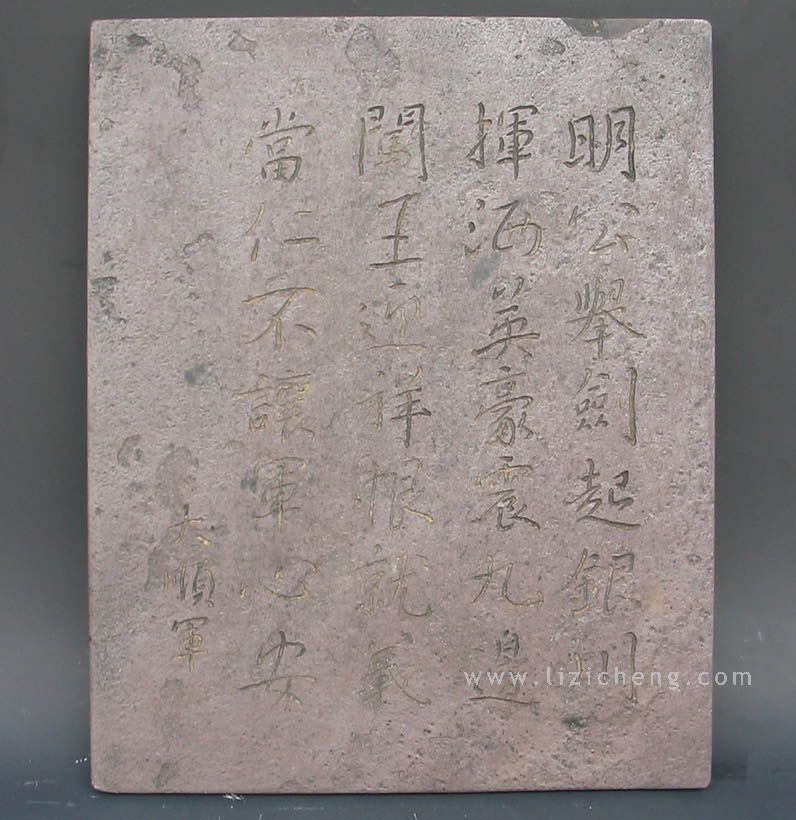 明公舉劍起銀川
揮洒英豪震九邊
闖王迎祥恨就義
當仁不讓軍心安
大順軍
www.lizicheng.com